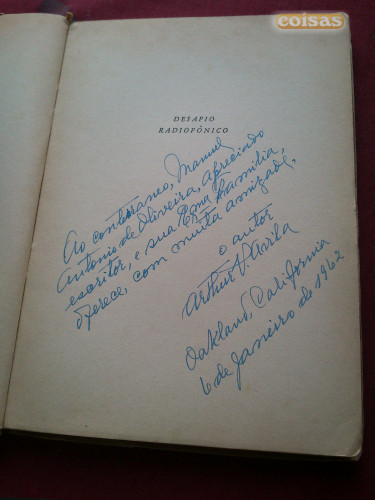 coisas
DESAFIO
RADIOFÔNICO
Ao conterraneo, Manuel
Antonio de Oliveira, apreciado
escritor, e sua Exma Familia,
oferece, com muita amizade,
o autor
Arthur V. Avila
Oakland, California
6 de Janeiro de 1962